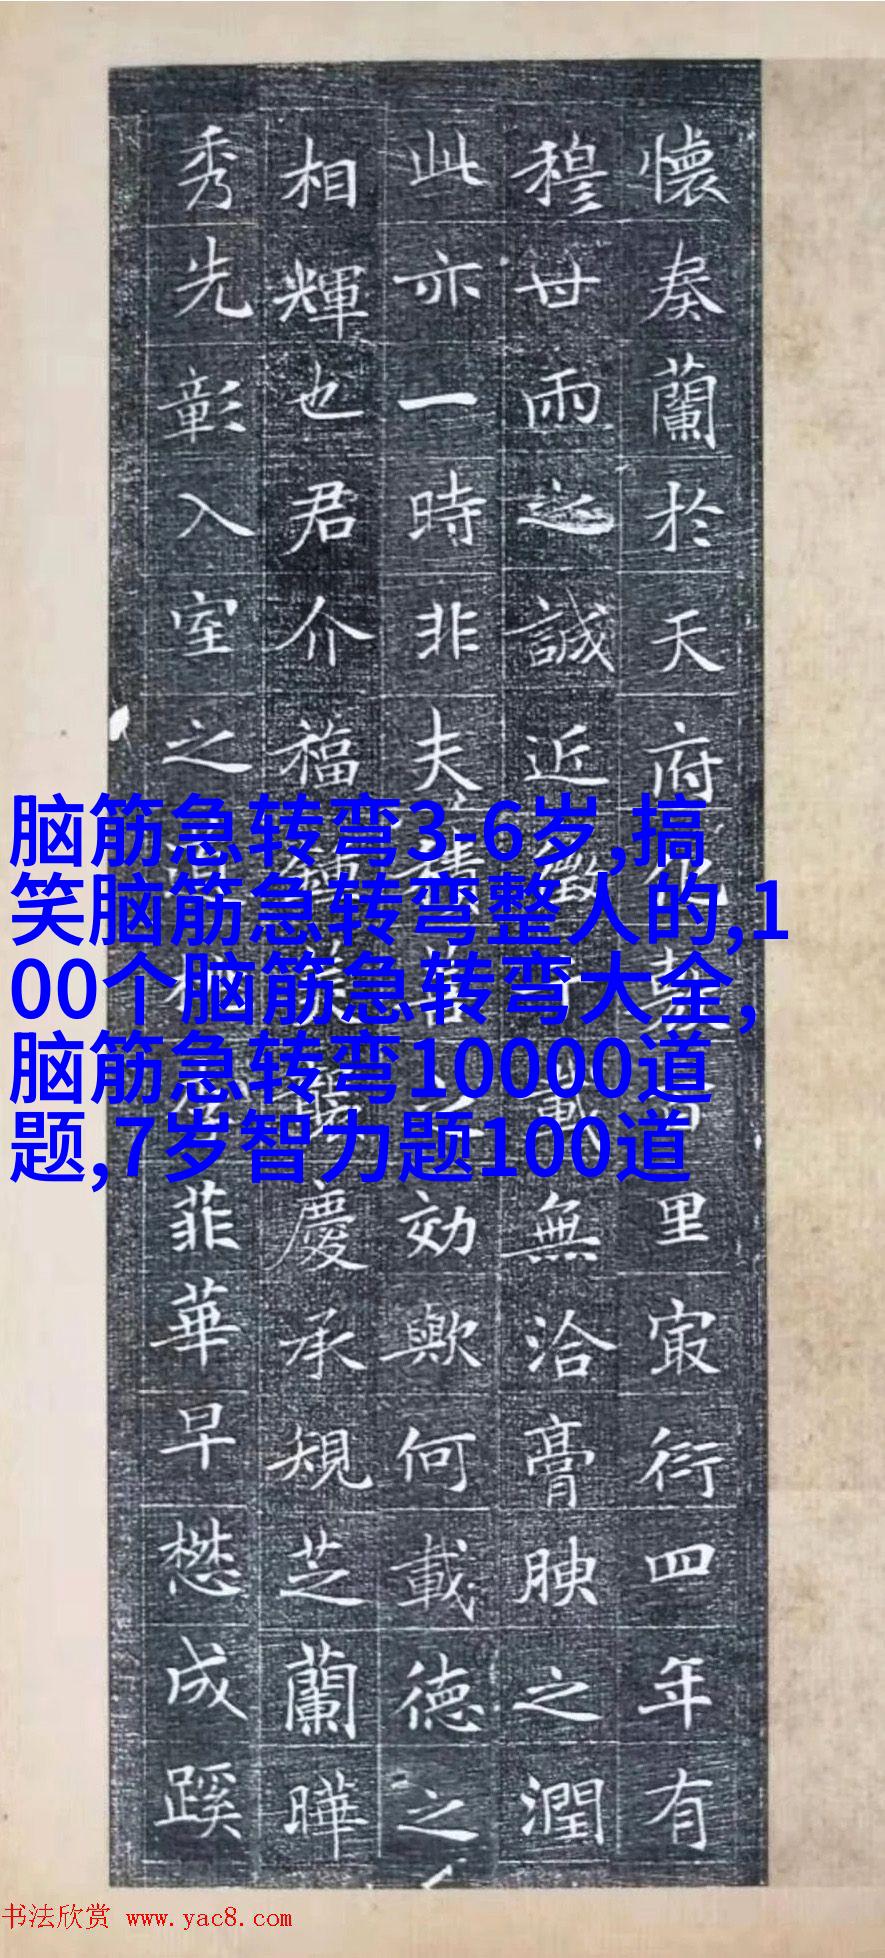 懷奏蘭於天府里冣衍四年有
穆世雨之誠近徵無洽膏腴之潤
此亦一時非夫積善之効歟何載德之
相輝也君介福慶承規芝蘭曄
秀先彰入室之菲華早懋成蹊
脑筋急转弯3-6岁,搞
笑脑筋急转弯整人的,1
00个脑筋急转弯大全,
脑筋急转弯10000道
题,7岁智力题100道
书法欣赏 www.yac8.com